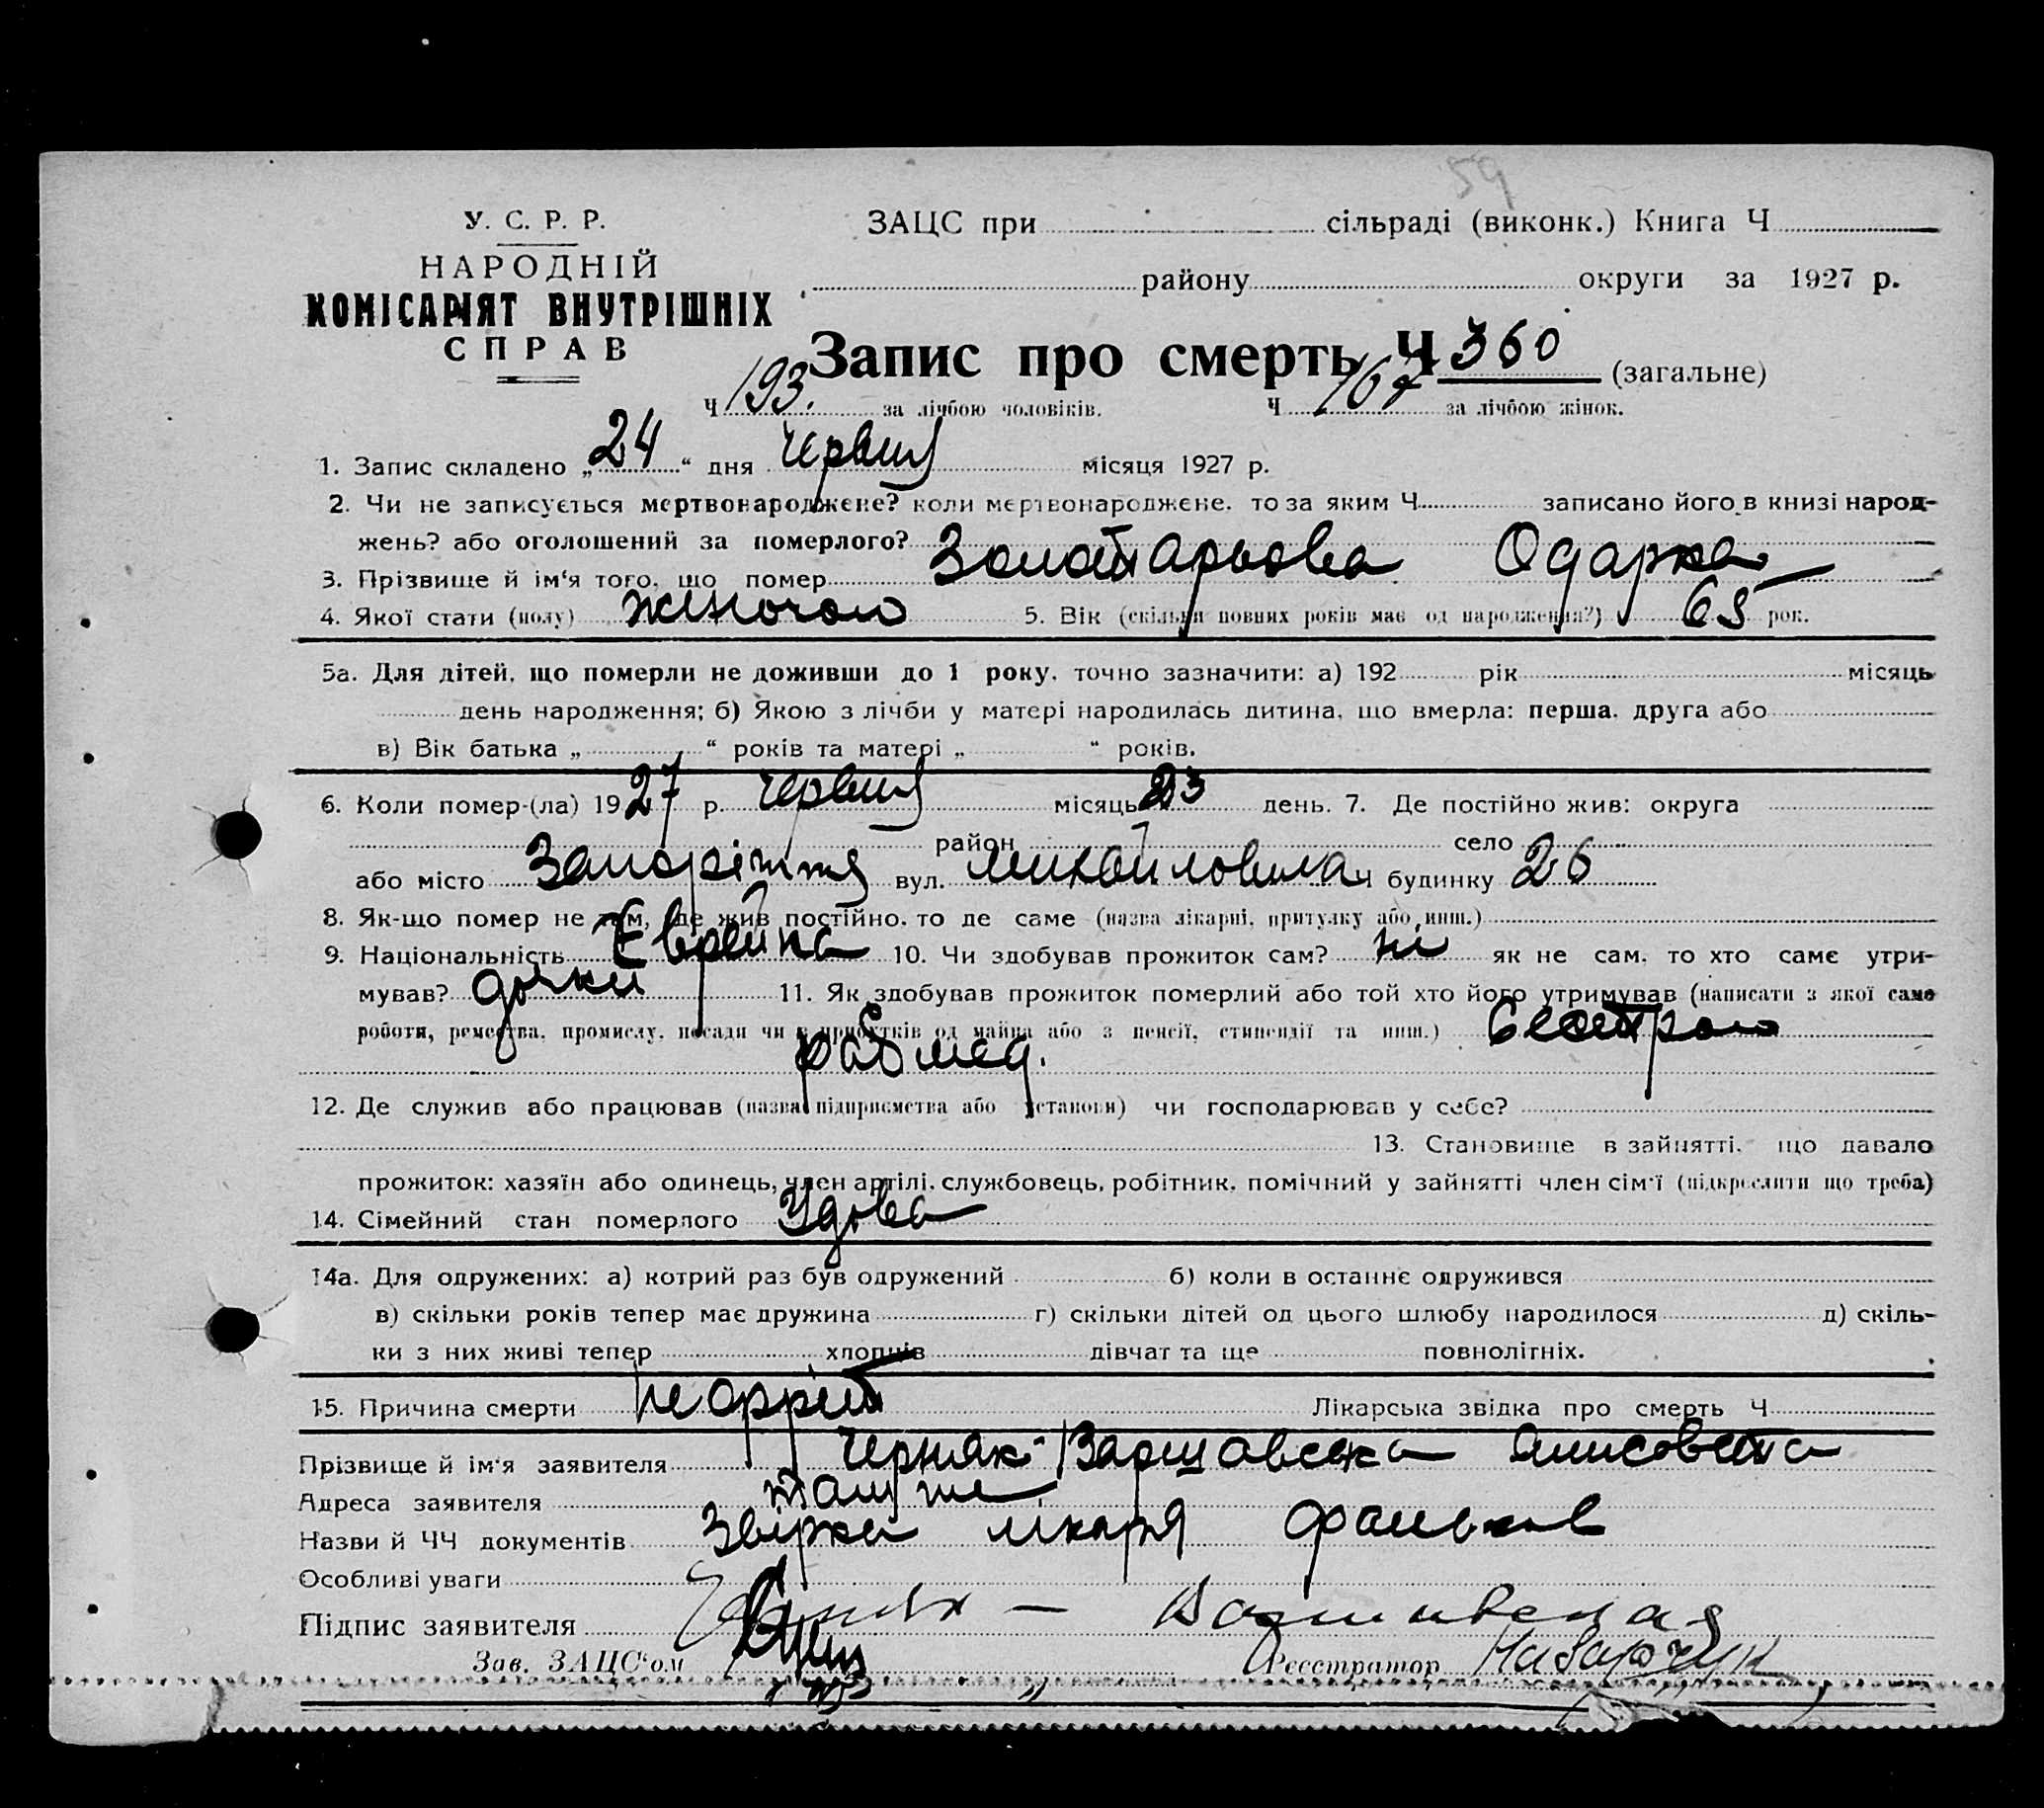 59
У. С. Р. Р.
НАРОДНІЙ
КОМІСАРІЯТ ВНУТРІШНІХ
СПРАВ
ЗАЦС при сільраді (виконк.) Книга Ч
району округи за 1927 р.
Запис про смерть Ч 360 (загальне)
Ч 193. за лічбою чоловіків. Ч 167 за лічбою жінок.
1. Запис складено „24“ дня червня місяця 1927 р.
2. Чи не записується мертвонароджене? коли мертвонароджене, то за яким Ч записано його в книзі народ-
жень? або оголошений за померлого?
3. Прізвище й ім'я того, що помер Золотарьова Одарка
4. Якої стати (полу) жіночою 5. Вік (скільки повних років має од народження?) 65 рок.
5а. Для дітей, що померли не доживши до 1 року, точно зазначити: а) 192 рік місяць
день народження; б) Якою з лічби у матері народилась дитина, що вмерла: перша, друга або
в) Вік батька „ “ років та матері „ “ років.
6. Коли помер-(ла) 1927 р. червня місяць 23 день. 7. Де постійно жив: округа
район село
або місто Запоріжжя вул. Михайловська Ч будинку 26
8. Як-що помер не там, де жив постійно, то де саме (назва лікарні, притулку або инш.)
9. Національність Еврейка 10. Чи здобував прожиток сам? ні як не сам, то хто саме утри-
мував? дочки 11. Як здобував прожиток померлий або той хто його утримував (написати з якої саме
роботи, ремества, промислу, посади чи у прибутків од майна або з пенсії, стипендії та инш.) Сестрою
рабмед.
12. Де служив або працював (назва підприємства або установи) чи господарював у себе?
13. Становище в зайнятті, що давало
прожиток: хазяїн або одинець, член артілі, службовець, робітник, помічний у зайнятті член сім'ї (підкреслити що треба)
14. Сімейний стан померлого Удова
14а. Для одружених: а) котрий раз був одружений б) коли в останнє одружився
в) скільки років тепер має дружина г) скільки дітей од цього шлюбу народилося д) скіль-
ки з них живі тепер хлопців дівчат та ще повнолітніх.
15. Причина смерти Нефріт Лікарська звідка про смерть Ч
Прізвище й ім'я заявителя Черняк-Варшавська Єлисовета
Адреса заявителя там же
Назви й ЧЧ документів Звірка лікаря
Особливі уваги
Підпис заявителя Черняк — Варшавская
Зав. ЗАЦС'ом Реєстратор Назарчук